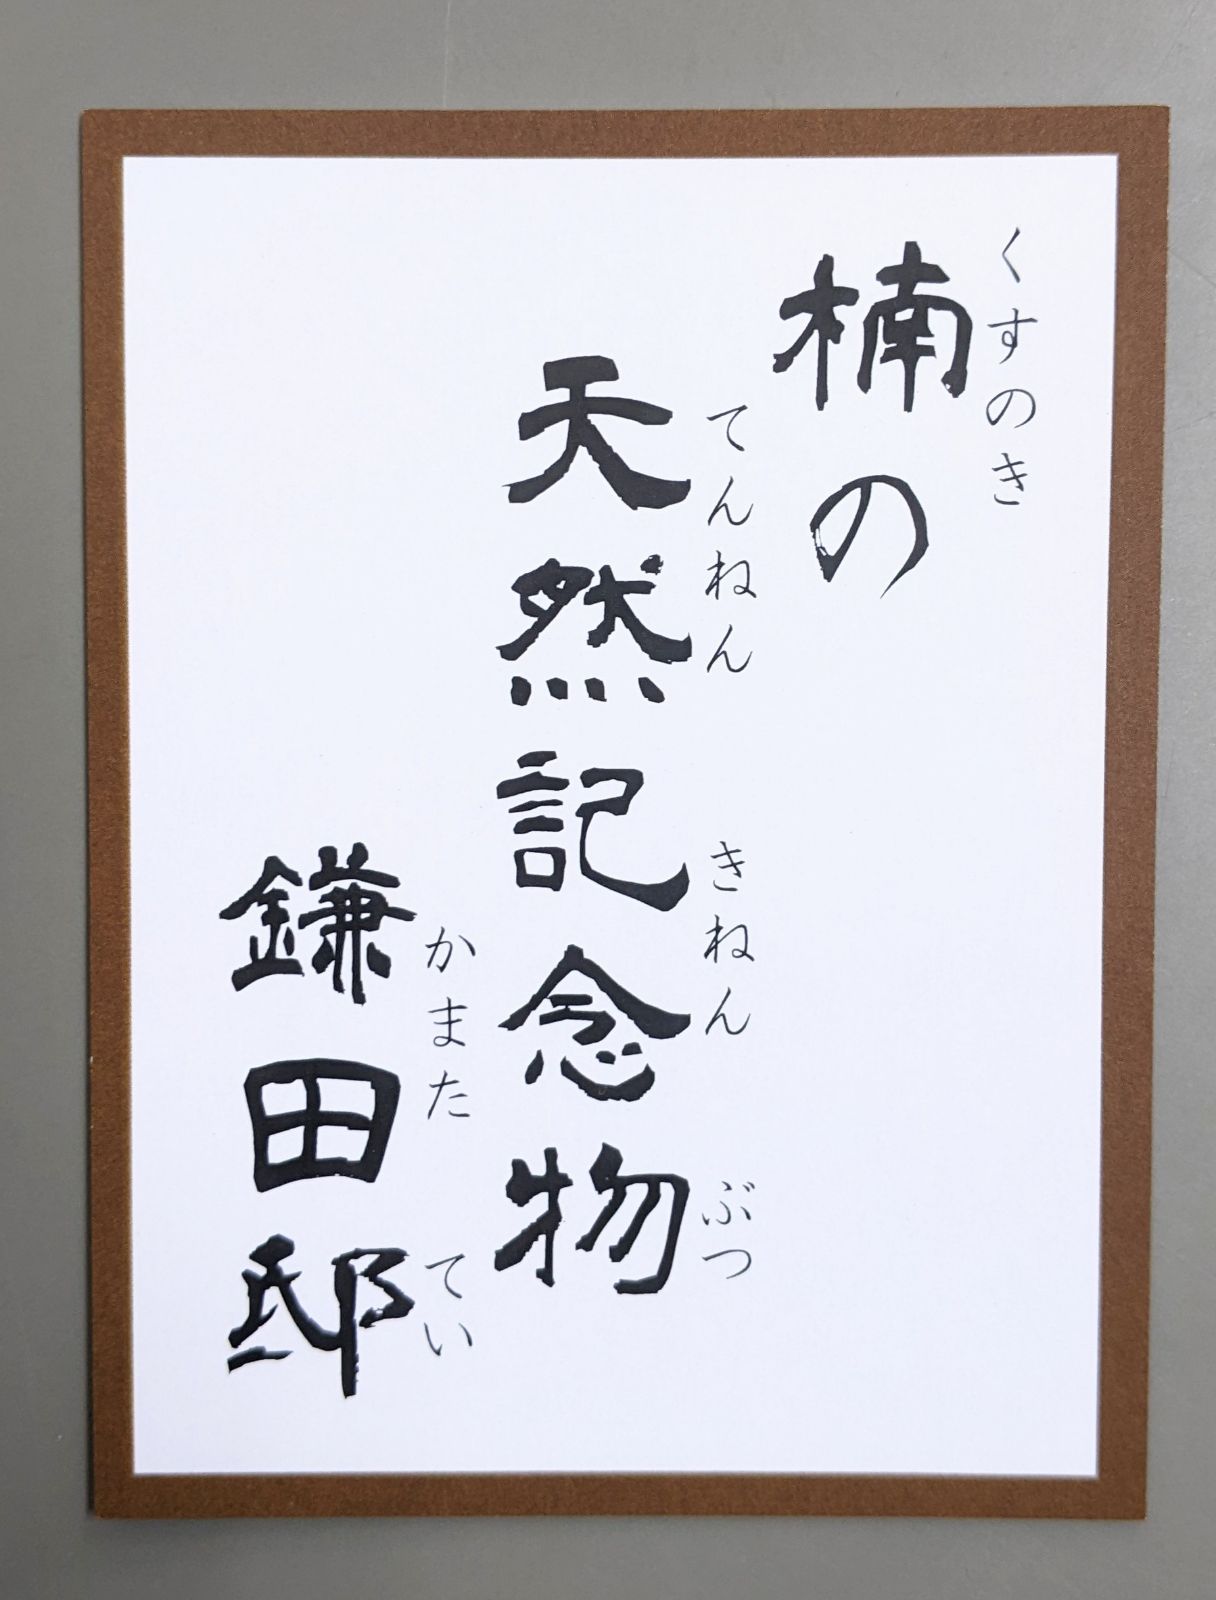 楠の
くすのき
天然記念物
てんねん きねん ぶつ
鎌田邸
かまた てい